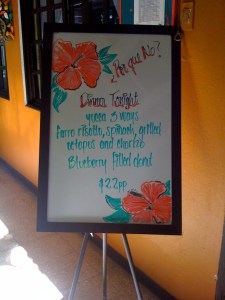 ¿Por qué No?
Dinner Tonight
yucca 3 ways
farro risotto, spinach, grilled
octopus and chorizo
Blueberry filled donut
$22pp